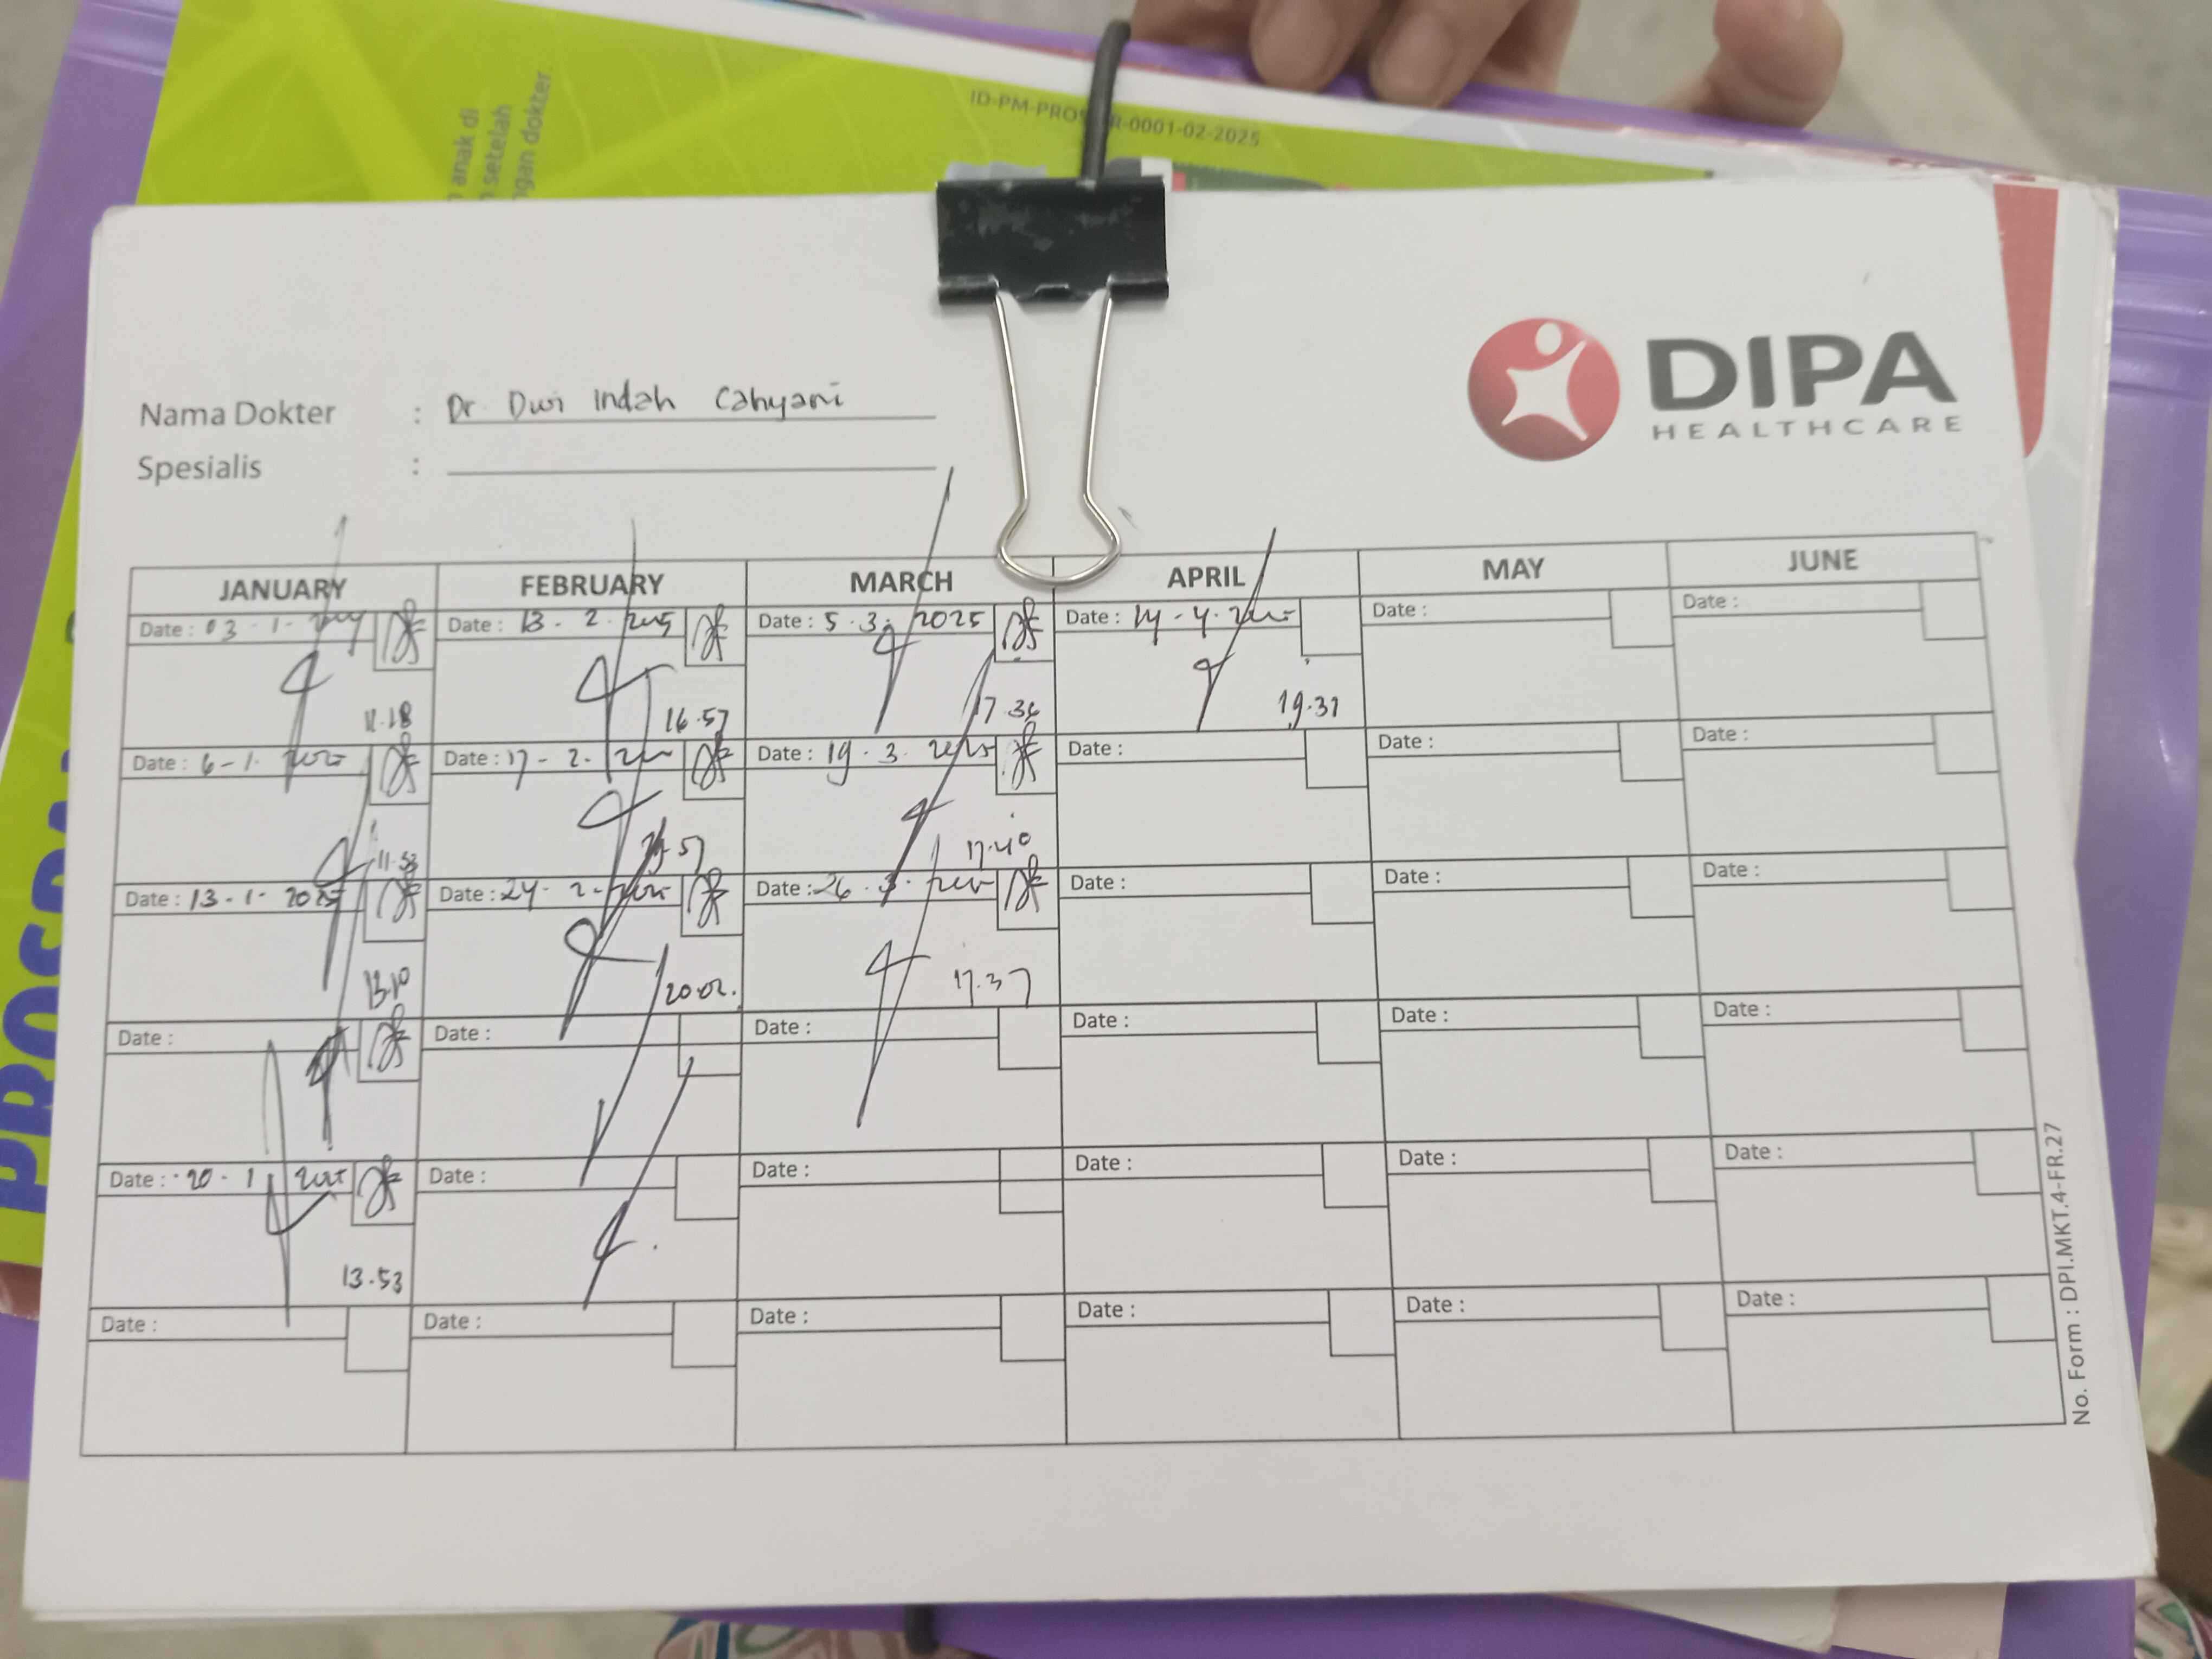 anak di
setelah
ngan dokter
ID-PM-PROS R-0001-02-2025
Nama Dokter : Dr Dwi Indah Cahyani
Spesialis :
DIPA
HEALTHCARE
JANUARY FEBRUARY MARCH APRIL MAY JUNE
Date : 03 - 1 - Date : 13 - 2. 2025 Date : 5 . 3 . 2025 Date : 14 - 4 . 2025 Date : Date :
11.18 16.57 17.36 19.31
Date : 6 - 1 . 2025 Date : 17 - 2 . 2025 Date : 19 . 3 . 2025 Date : Date : Date :
11.53 57 17.40
Date : 13 - 1 - 2025 Date : 24 - 2 - 2025 Date : 26 . 3 . 2025 Date : Date : Date :
13.10 20.02. 17.37
Date : Date : Date : Date : Date : Date :
Date : 20 - 1 2025 Date : Date : Date : Date : Date :
13.53
Date : Date : Date : Date : Date : Date :
No. Form : DPI.MKT.4-FR.27